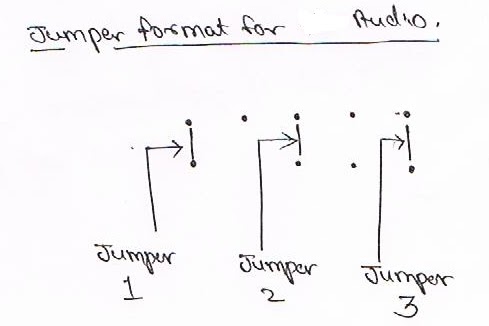 Jumper format for Audio.
Jumper
1
Jumper
2
Jumper
3